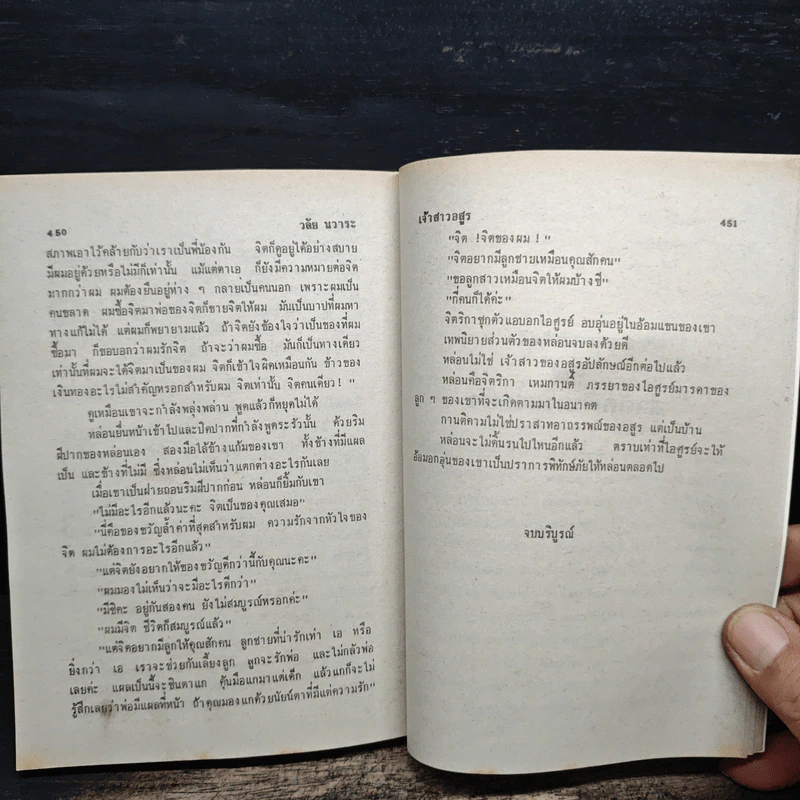 450
วลัย นวาระ
สภาพเอาไว้คล้ายกับว่าเราเป็นพี่น้องกัน จิตก็ดูอยู่ได้อย่างสบาย
มีผมอยู่ด้วยหรือไม่มีก็เท่านั้น แม้แต่ตาเอ ก็ยังมีความหมายต่อจิต
มากกว่าผม ผมต้องยืนอยู่ห่าง ๆ กลายเป็นคนนอก เพราะผมเป็น
คนขลาด ผมซื้อจิตมาพ่อของจิตก็ขายจิตให้ผม มันเป็นบาปที่ผมหา
ทางแก้ไม่ได้ แต่ผมก็พยายามแล้ว ถ้าจิตยังข้องใจว่าเป็นของที่ผม
ซื้อมา ก็ขอบอกว่าผมรักจิต ถ้าจะว่าผมซื้อ มันก็เป็นทางเดียว
เท่านั้นที่ผมจะได้จิตมาเป็นของผม จิตก็เข้าใจผิดเหมือนกัน ข้าวของ
เงินทองอะไรไม่สำคัญหรอกสำหรับผม จิตเท่านั้น จิตคนเดียว ! "
ดูเหมือนเขาจะกำลังพลุ่งพล่าน พูดแล้วก็หยุดไม่ได้
หล่อนยื่นหน้าเข้าไปและปิดปากที่กำลังพูดระรัวนั้น ด้วยริม
ฝีปากของหล่อนเอง สองมือไล้ข้างแก้มของเขา ทั้งข้างที่มีแผล
เป็น และข้างที่ไม่มี ซึ่งหล่อนไม่เห็นว่าแตกต่างอะไรกันเลย
เมื่อเขาเป็นฝ่ายถอนริมฝีปากก่อน หล่อนก็ยิ้มกับเขา
"ไม่มีอะไรอีกแล้วนะคะ จิตเป็นของคุณเสมอ"
"นี่คือของขวัญล้ำค่าที่สุดสำหรับผม ความรักจากหัวใจของ
จิต ผมไม่ต้องการอะไรอีกแล้ว"
"แต่จิตยังอยากให้ของขวัญดีกว่านี้กับคุณนะคะ"
"ผมมองไม่เห็นว่าจะมีอะไรดีกว่า"
"มีซิคะ อยู่กันสองคน ยังไม่สมบูรณ์หรอกค่ะ"
"ผมมีจิต ชีวิตก็สมบูรณ์แล้ว"
"แต่จิตอยากมีลูกให้คุณสักคน ลูกชายที่น่ารักเท่า เอ หรือ
ยิ่งกว่า เอ เราจะช่วยกันเลี้ยงลูก ลูกจะรักพ่อ และไม่กลัวพ่อ
เลยค่ะ แผลเป็นนี้จะชินตาแก คุ้นมือแกมาแต่เด็ก แล้วแกก็จะไม่
รู้สึกเลยว่าพ่อมีแผลที่หน้า ถ้าคุณมองแกด้วยนัยน์ตาที่มีแต่ความรัก"
เจ้าสาวอสูร
451
"จิต !จิตของผม ! "
"จิตอยากมีลูกชายเหมือนคุณสักคน"
"ขอลูกสาวเหมือนจิตให้ผมบ้างซี"
"กี่คนก็ได้ค่ะ"
จิตริกาซุกตัวแอบอกไอศูรย์ อบอุ่นอยู่ในอ้อมแขนของเขา
เทพนิยายส่วนตัวของหล่อนจบลงด้วยดี
หล่อนไม่ใช่ เจ้าสาวของอสูรอัปลักษณ์อีกต่อไปแล้ว
หล่อนคือจิตริกา เหมกานติ์ ภรรยาของไอศูรย์มารดาของ
ลูก ๆ ของเขาที่จะเกิดตามมาในอนาคต
กานติคามไม่ใช่ปราสาทอาถรรพณ์ของอสูร แต่เป็นบ้าน
หล่อนจะไม่ดิ้นรนไปไหนอีกแล้ว ตราบเท่าที่ไอศูรย์จะให้
อ้อมอกอุ่นของเขาเป็นปราการพิทักษ์ภัยให้หล่อนตลอดไป
จบบริบูรณ์